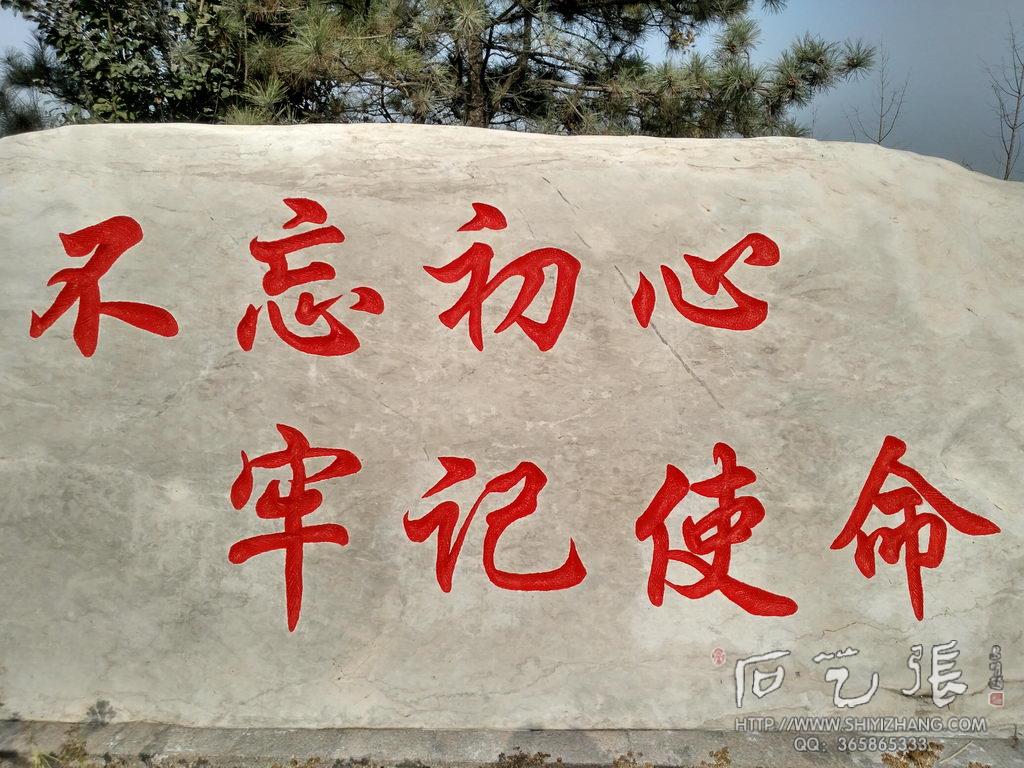 不忘初心
牢记使命
石艺張
HTTP://WWW.SHIYIZHANG.COM
QQ: 365865333